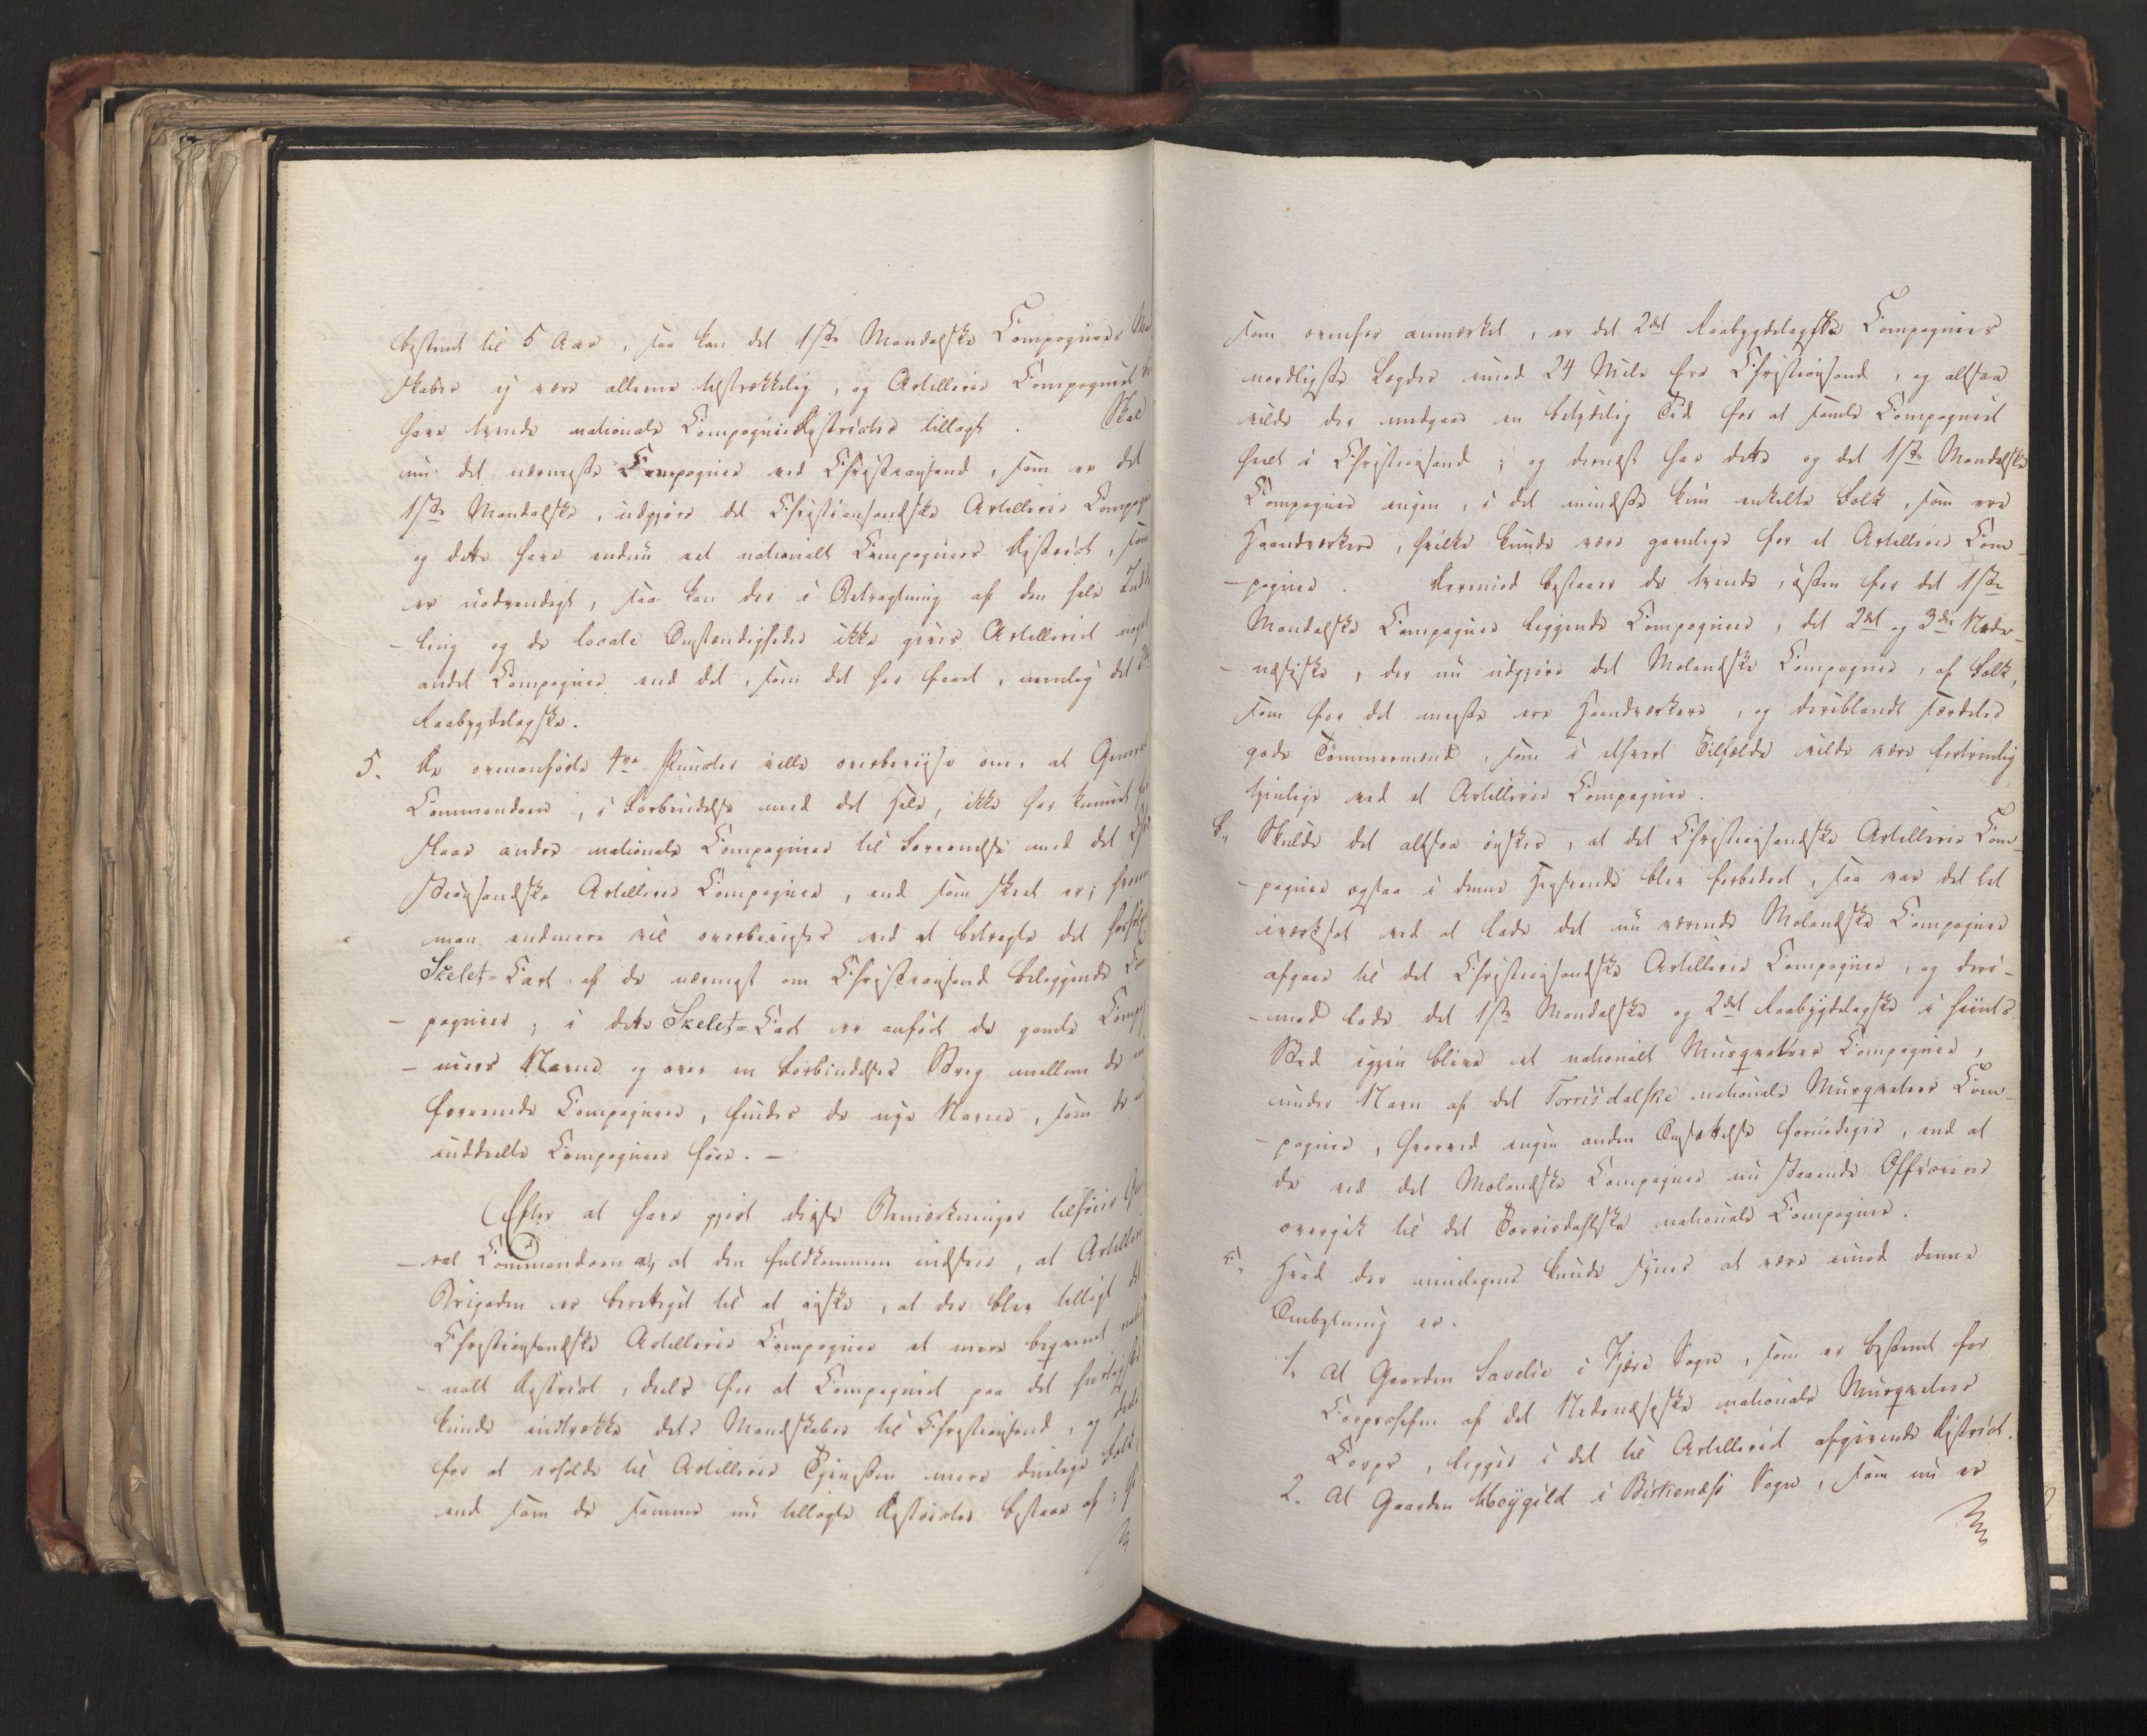 bestemt til 5 Aar, saa kan det 1ste Mandalske Compagnies
skaber ej være alleene tilstrækkelig, og Artillerie Compagniet
have tvende nationale Compagnie Districter tillagt. Skal
nu det nærmeste Compagnie ved Christiansand, som er det
1ste Mandalske, udgjøre det Christiansandske Artillerie
og dette have endnu eet nationalt Compagnies District, som
er nødvendigt, saa kan der i Betragtning af den hele
-ling og de locale Omstændigheder ikke gives Artilleriet noget
andet Compagnie end det, som det har faaet, nemlig det
Raabygdelagske.
5. De ovenanførte 4re Puncter ville overbeviise om, at
Commandoen, i Forbindelse med det Hele, ikke har kunnet
slaae andre nationale Compagnier til Foreenelse med det
stiansandske Artillerie Compagnie, end som skeet er;
man endmere vil overbevises ved at betragte det
Skelet-Cart af de nærmest om Christiansand beliggende
-pagnier; i dette Skelet-Cart er anført de gamle
-niers Navne og over en Forbindelses Streg mellem de
foreenede Compagnier, findes de nye Navne, som de
inddeelte Compagnier føre. -
Efter at have gjort disse Bemærkninger tilføier
-ral Commandoen a, at den fuldkommen indseer, at
Brigaden er berettiget til at ønske, at der blev tillagt
Christiansandske Artillerie Compagnie et mere beqvemt
-nalt District, deels for at Compagniet paa det
kunde indtrække dets Mandskaber til Christiansand, og
for at erholde til Artillerie Tjenesten mere duelige Folk,
end som de samme nu tillagte Districter bestaae af;
som ovenfor anmærket, er det 2det Raabygdelagske Compagnies
nordligste Lægder imod 24 Mile fra Christiansand, og altsaa
vilde der medgaae en betydelig Tid for at samle Compagniet
heelt i Christiansand; og dernæst har dette og det 1ste Mandalske
Compagnie ingen, i det mindste kun enkelte Folk, som ere
Haandværkere, hvilke kunde være gavnlige for et Artillerie Com-
-pagnie. Derimod bestaaer de tvende, østen for det 1ste
Mandalske Compagnie liggende Compagnier, det 2det og 3die Nede-
-næsiske, der nu udgjøre det Molandske Compagnie, af Folk,
som for det meste ere Haandværkere, og deriblandt særdeles
gode Tømmermænd, som i ethvert Tilfælde vilde være fortrinlig
tjenlige ved et Artillerie Compagnie.
b, Skulde det altsaa ønskes, at det Christiansandske Artillerie Com-
-pagnie ogsaa i denne Henseende blev forbedret, saa var det let
iværksat ved at lade det nu værende Molandske Compagnie
afgaae til det Christiansandske Artillerie Compagnie, og deri-
-mod lade det 1ste Mandalske og 2det Raabygdelagske i hiints
Sted igjen blive et nationalt Musqveteer Compagnie,
under Navn af det Torrisdalske nationale Musqveteer Com-
-pagnie, hvorved ingen anden Omsættelse fornødiges, end at
de ved det Molandske Compagnie nu staaende Officierer
overgik til det Torrisdahlske nationale Compagnie.
c, Hvad der muligens kunde synes at være imod denne
Ombytning er.
1. At Gaarden Savelie i Fjære Sogn, som er bestemt for
Corpschefen af det Nedenæsiske nationale Musqveteer
Corps, ligger i det til Artilleriet afgivende District.
2. At Gaarden Møygild i Birkenæss Sogn, som nu er